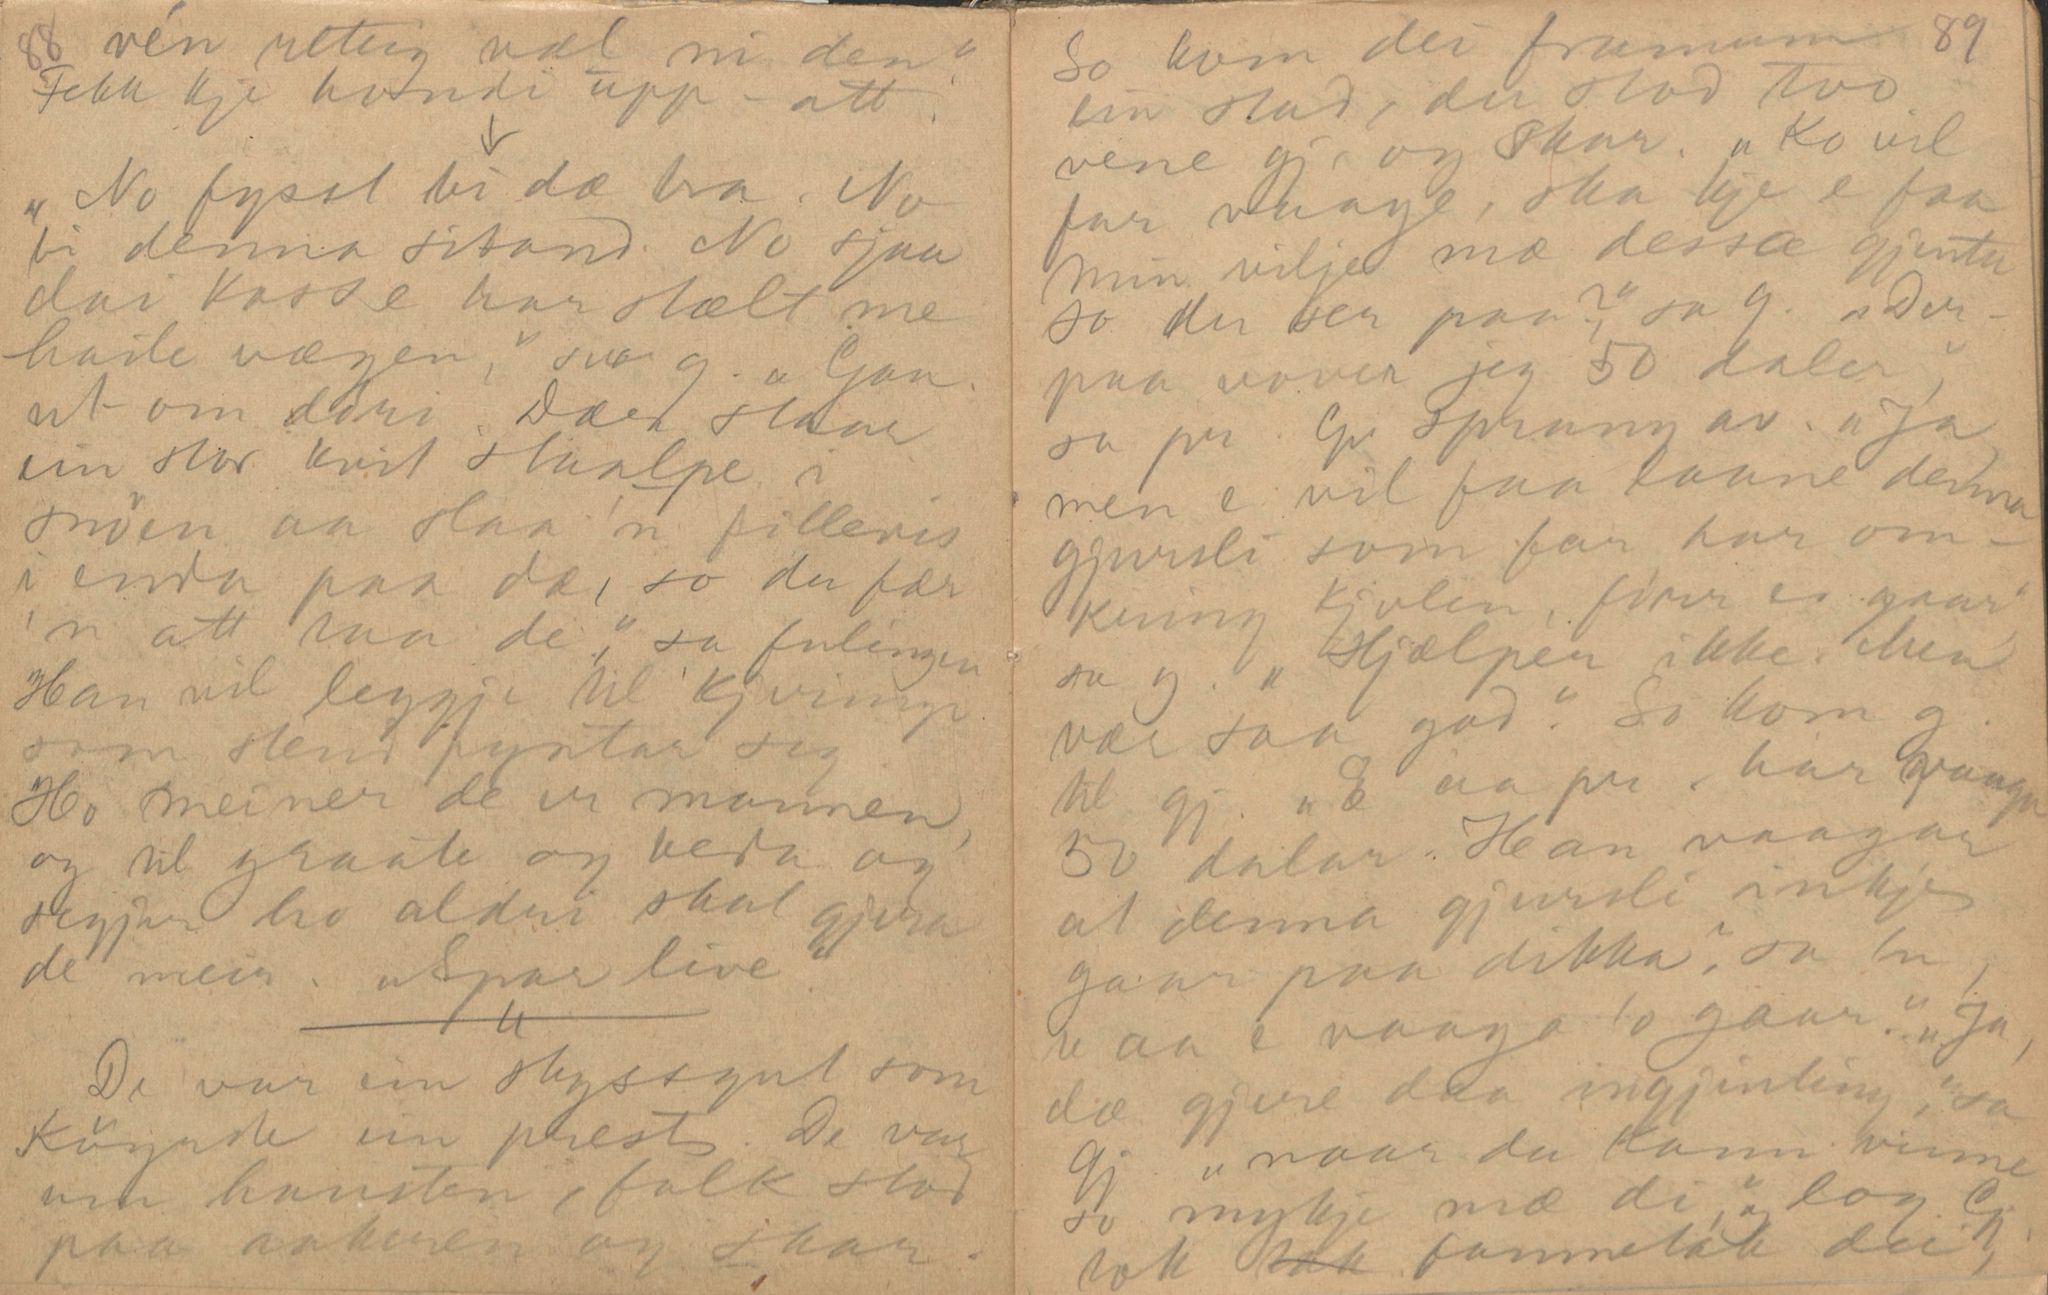 88
vén retteg væl ni den"
Fekk kje hondi upp-att.
"No fysst bi dæ bra. No
bi denna sitand. No sjaa
dai kosse har stælt me
haile vægen," sa g. "Gaa
ut om döri. Dær staar
ein stor kvit staalpe i
snöen aa slaa 'n filleris
i enda paa dæ, so du fær
'n att haa de," sa fulingen
Han vil leggje til kjeringi
som stend pyntar seg
Ho meiner de er mannen,
og til graate og beda og
segjer ho aldri skal gjera
de meir. "Spar live"
De var ein skyssgut som
köyrde ein prest. De var
um hausten, folk stod
paa aakeren og skar.
89
So kom dei framum
ein stad, der stod tvo
vene gj. og skar. "Ko vil
far vaage, ska kje e faa
min vilje mæ dessa gjentu
so du ser paa?," sa g. "Der-
paa vover jeg 50 daler,"
sa pr. G. sprang av. "Ja
men e vil faa laane denna
gjursli som far har om-
kring kjolen, förr e gaar"
sa g. "Hjælper ikke. Men
vær saa god." So kom g.
til gj. "E aa pr. har vaaga
50 dalar. Han vaagar
at denna gjursli inkje
gaar paa dikka," sa 'n,
"aa e vaaga 'o gaar." "Ja,
dæ gjere daa ingjinting," sa
gj. "naar du kann vinne
so mykje mæ di," log gj.
tok fammetak dei,